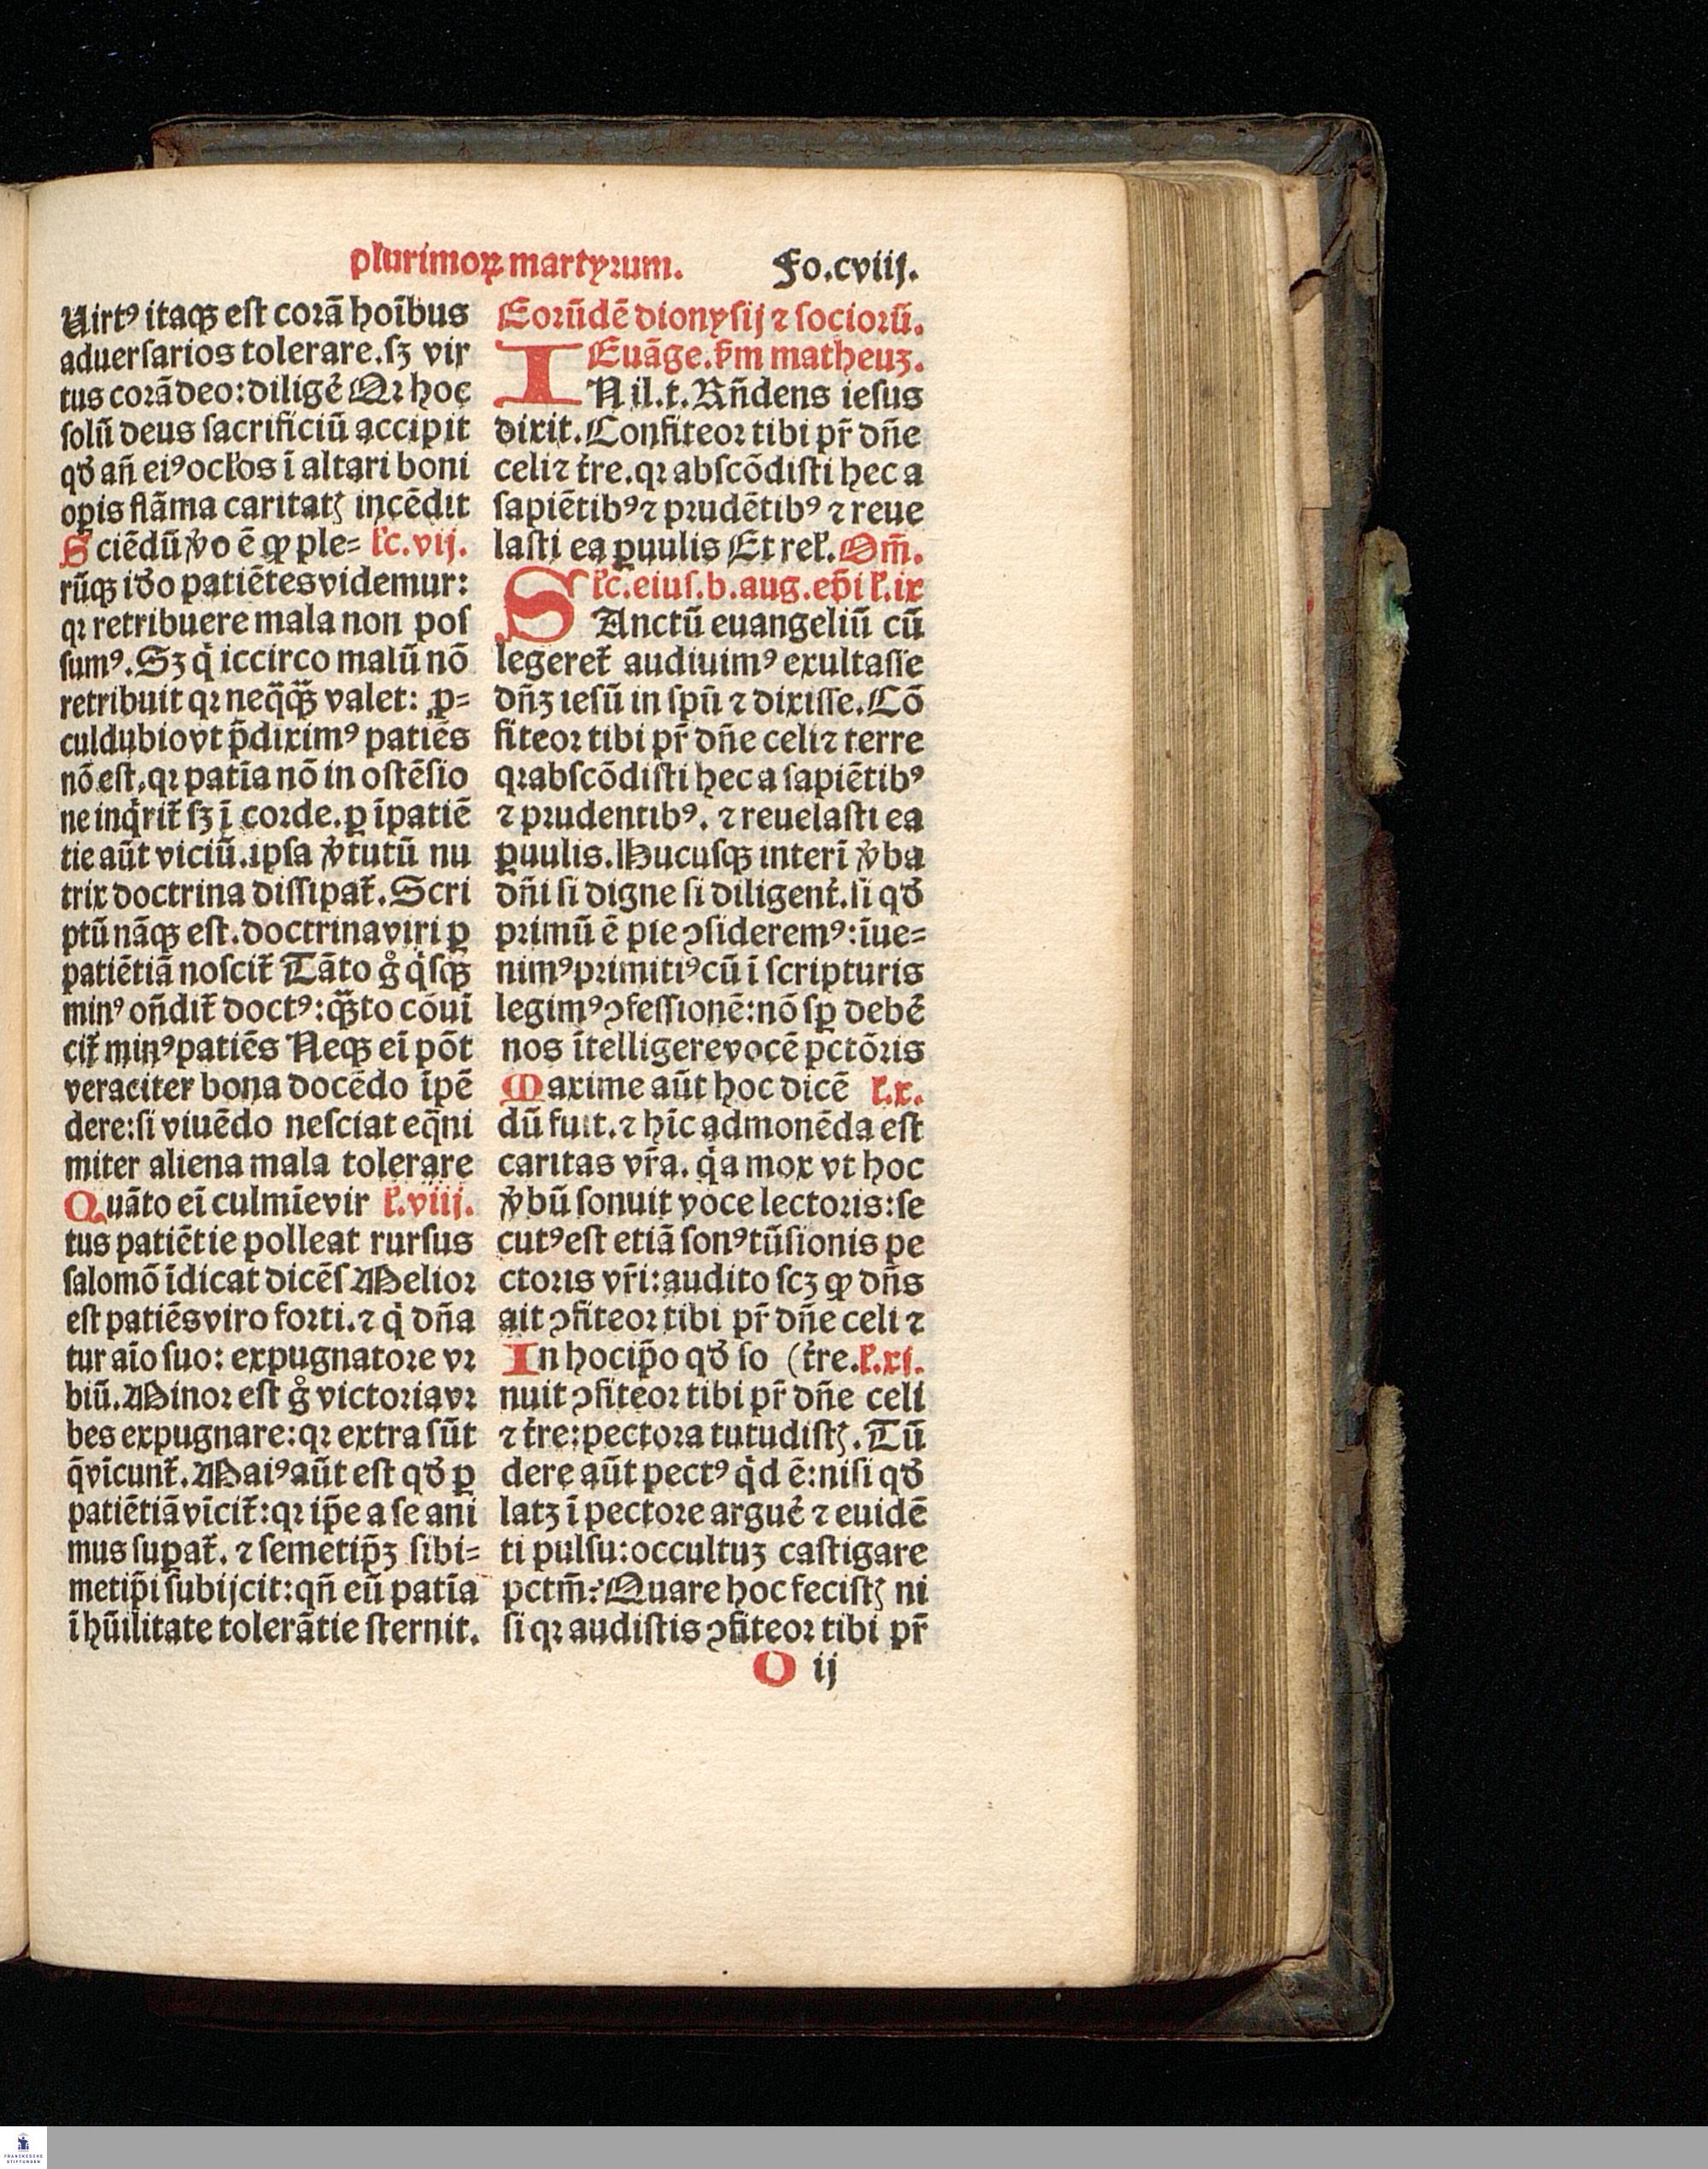 plurimoꝝ martyrum. Fo.cviij.
Uirtꝰ itaqꝫ eſt corā hoībus
aduerſarios tolerare.ſꝫ vir
tus corā deo: diligē Qꝛ hoc
ſolū deus ſacrificiū accipit
qđ añ eiꝰ ocłos ī altari boni
opis flāma caritatꝭ incēdit
Sciēdū ꝟo ē ꝙ ple= łc.vij.
rūqꝫ iđo patiētes videmur:
qꝛ retribuere mala non poſ
ſumꝰ. Sꝫ qͥ iccirco malū nō
retribuit qꝛ neq̄qꝫ̄ valet: ꝓ=
culdubio vt p̄diximꝰ patiēs
nō eſt, qꝛ patīa nō in oſtēſio
ne inqͥrit̄ ſꝫ ī corde. ꝑ īpatiē
tie aūt viciū.ipſa ꝟtutū nu
trix doctrina diſſipat̄. Scri
ptū nāqꝫ eſt. doctrina viri ꝑ
patiētiā noſcit̄ Tāto gͦ qͥſqꝫ
minꝰ oñdit̄ doctꝰ: qꝫ̄to cōui
cit̄ minꝰ patiēs Neqꝫ eī pōt
veraciter bona docēdo īpē
dere: ſi viuēdo neſciat eq̄ni
miter aliena mala tolerare
Quāto eī culmīe vir ł.viij.
tus patiētie polleat rurſus
ſalomō īdicat dicēſ Melior
eſt patiēs viro forti. ⁊ qͥ dña
tur aīo ſuo: expugnatore vꝛ
biū. Minor eſt gͦ victoria vꝛ
bes expugnare: qꝛ extra ſūt
q̄ vīcunt̄. Maiꝰ aūt eſt qđ ꝑ
patiētiā vīcit̄: qꝛ ip̄e a ſe ani
mus ſupat̄. ⁊ ſemetip̄ꝫ ſibi=
metip̄i ſubijcit: qñ eū patīa
ī hūilitate tolerātie ſternit.
Eorūdē dionyſij ⁊ ſociorū.
Euāge. ẜm matheuꝫ.
IN il.t. Rñdens ieſus
dixit. Confiteor tibi pr̄ dñe
celi ⁊ t̄re. qꝛ abſcōdiſti hec a
ſapiētibꝰ ⁊ prudētibꝰ ⁊ reue
laſti ea ꝑuulis Et rel̵. Om̄.
łc. eiuſ. b. aug. ep̄i ł.ix
SAnctū euangeliū cū
legeret̄ audiuimꝰ exultaſſe
dñꝫ ieſū in ſpū ⁊ dixiſſe. Cō
fiteor tibi pr̄ dñe celi ⁊ terre
qꝛ abſcōdiſti hec a ſapiētibꝰ
⁊ prudentibꝰ. ⁊ reuelaſti ea
ꝑuulis. Hucuſqꝫ interī ꝟba
dñi ſi digne ſi diligent̄. ſi qđ
primū ē pie ꝯſideremꝰ: īue=
nimꝰ primitꝰ cū ī ſcripturis
legimꝰ ꝯfeſſionē: nō ſꝑ debē
nos ītelligere vocē pctōris
Maxime aūt hoc dicē ł.x.
dū fuit. ⁊ hīc admonēda eſt
caritas vr̄a. qͥa mox vt hoc
ꝟbū ſonuit voce lectoris: ſe
cutꝰ eſt etiā ſonꝰ tūſionis pe
ctoris vr̄i: audito ſcꝫ ꝙ dñs
ait ꝯfiteor tibi pr̄ dñe celi ⁊
In hoc ip̄o qđ ſo (t̄re. ł.xi.
nuit ꝯfiteor tibi pr̄ dñe celi
⁊ t̄re: pectora tutudiſtꝭ. Tū
dere aūt pectꝰ qͥd ē: niſi qđ
latꝫ ī pectore arguē ⁊ euidē
ti pulſu: occultuꝫ caſtigare
pctm̄? Quare hoc feciſtꝭ ni
ſi qꝛ audiſtis ꝯfiteor tibi pr̄
O ij
FRANCKESCHE
STIFTUNGEN